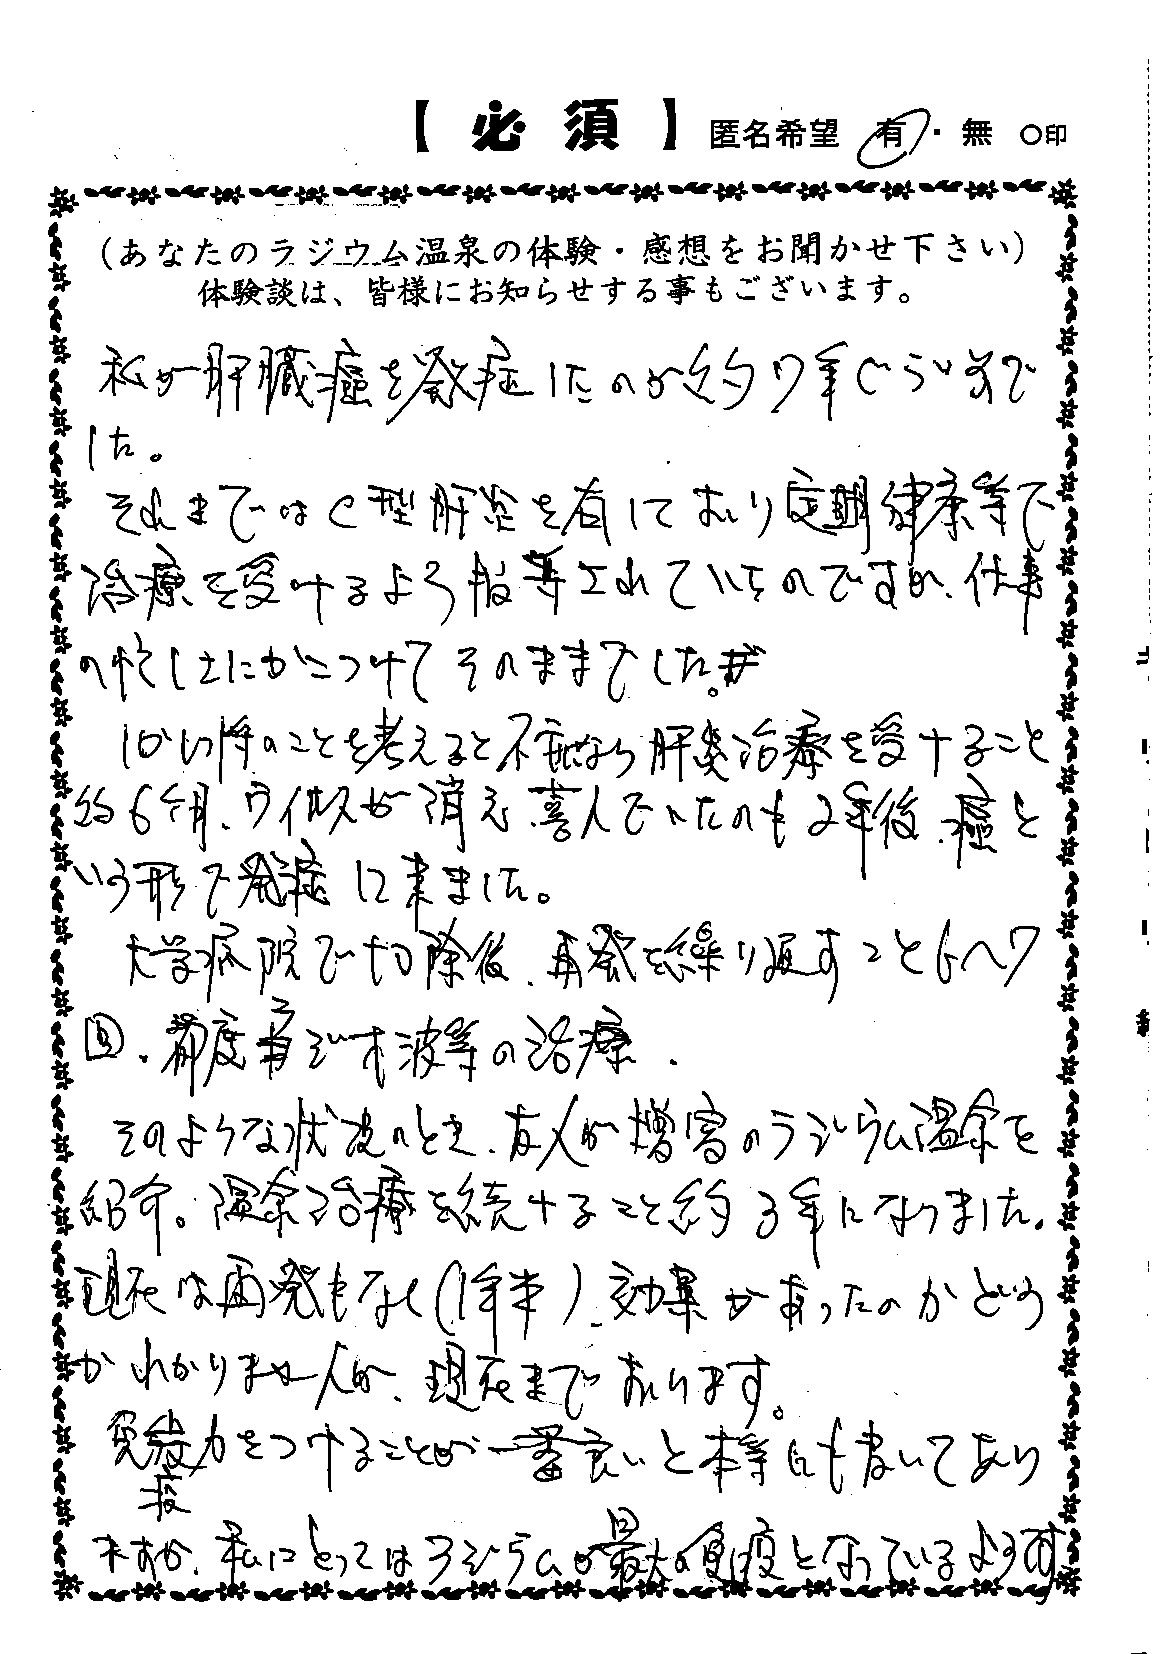 【 必 須 】 匿名希望 有・無 ○印
(あなたのラジウム温泉の体験・感想をお聞かせ下さい)
体験談は、皆様にお知らせする事もございます。
私が肝臓癌を発症したのが約7年ぐらい前で
した。
それまではC型肝炎を有しており定期健康等で
治療を受けるよう指導されていたのですが、仕事
の忙しさにかこつけてそのままでした。
いい時のことを考えると不安なら肝炎治療を受けること
約6ヶ月、ウイルスが消え、喜んでいたのも2年後、癌と
いう形で発症して来ました。
大学病院で切除後、再発を繰り返すこと6へ7
回、都度ラジオ波等の治療、
そのような状況のとき、友人が増富のラジウム温泉を
紹介。温泉治療を続けること約3年になりました。
現在は再発もなく(1年半)、効果があったのかどう
かわかりませんが、現在までおります。
免疫力をつけることが一番良いと本等にも書いてあり
疫
ますが、私にとってはラジウムが最大の免疫となっているようです